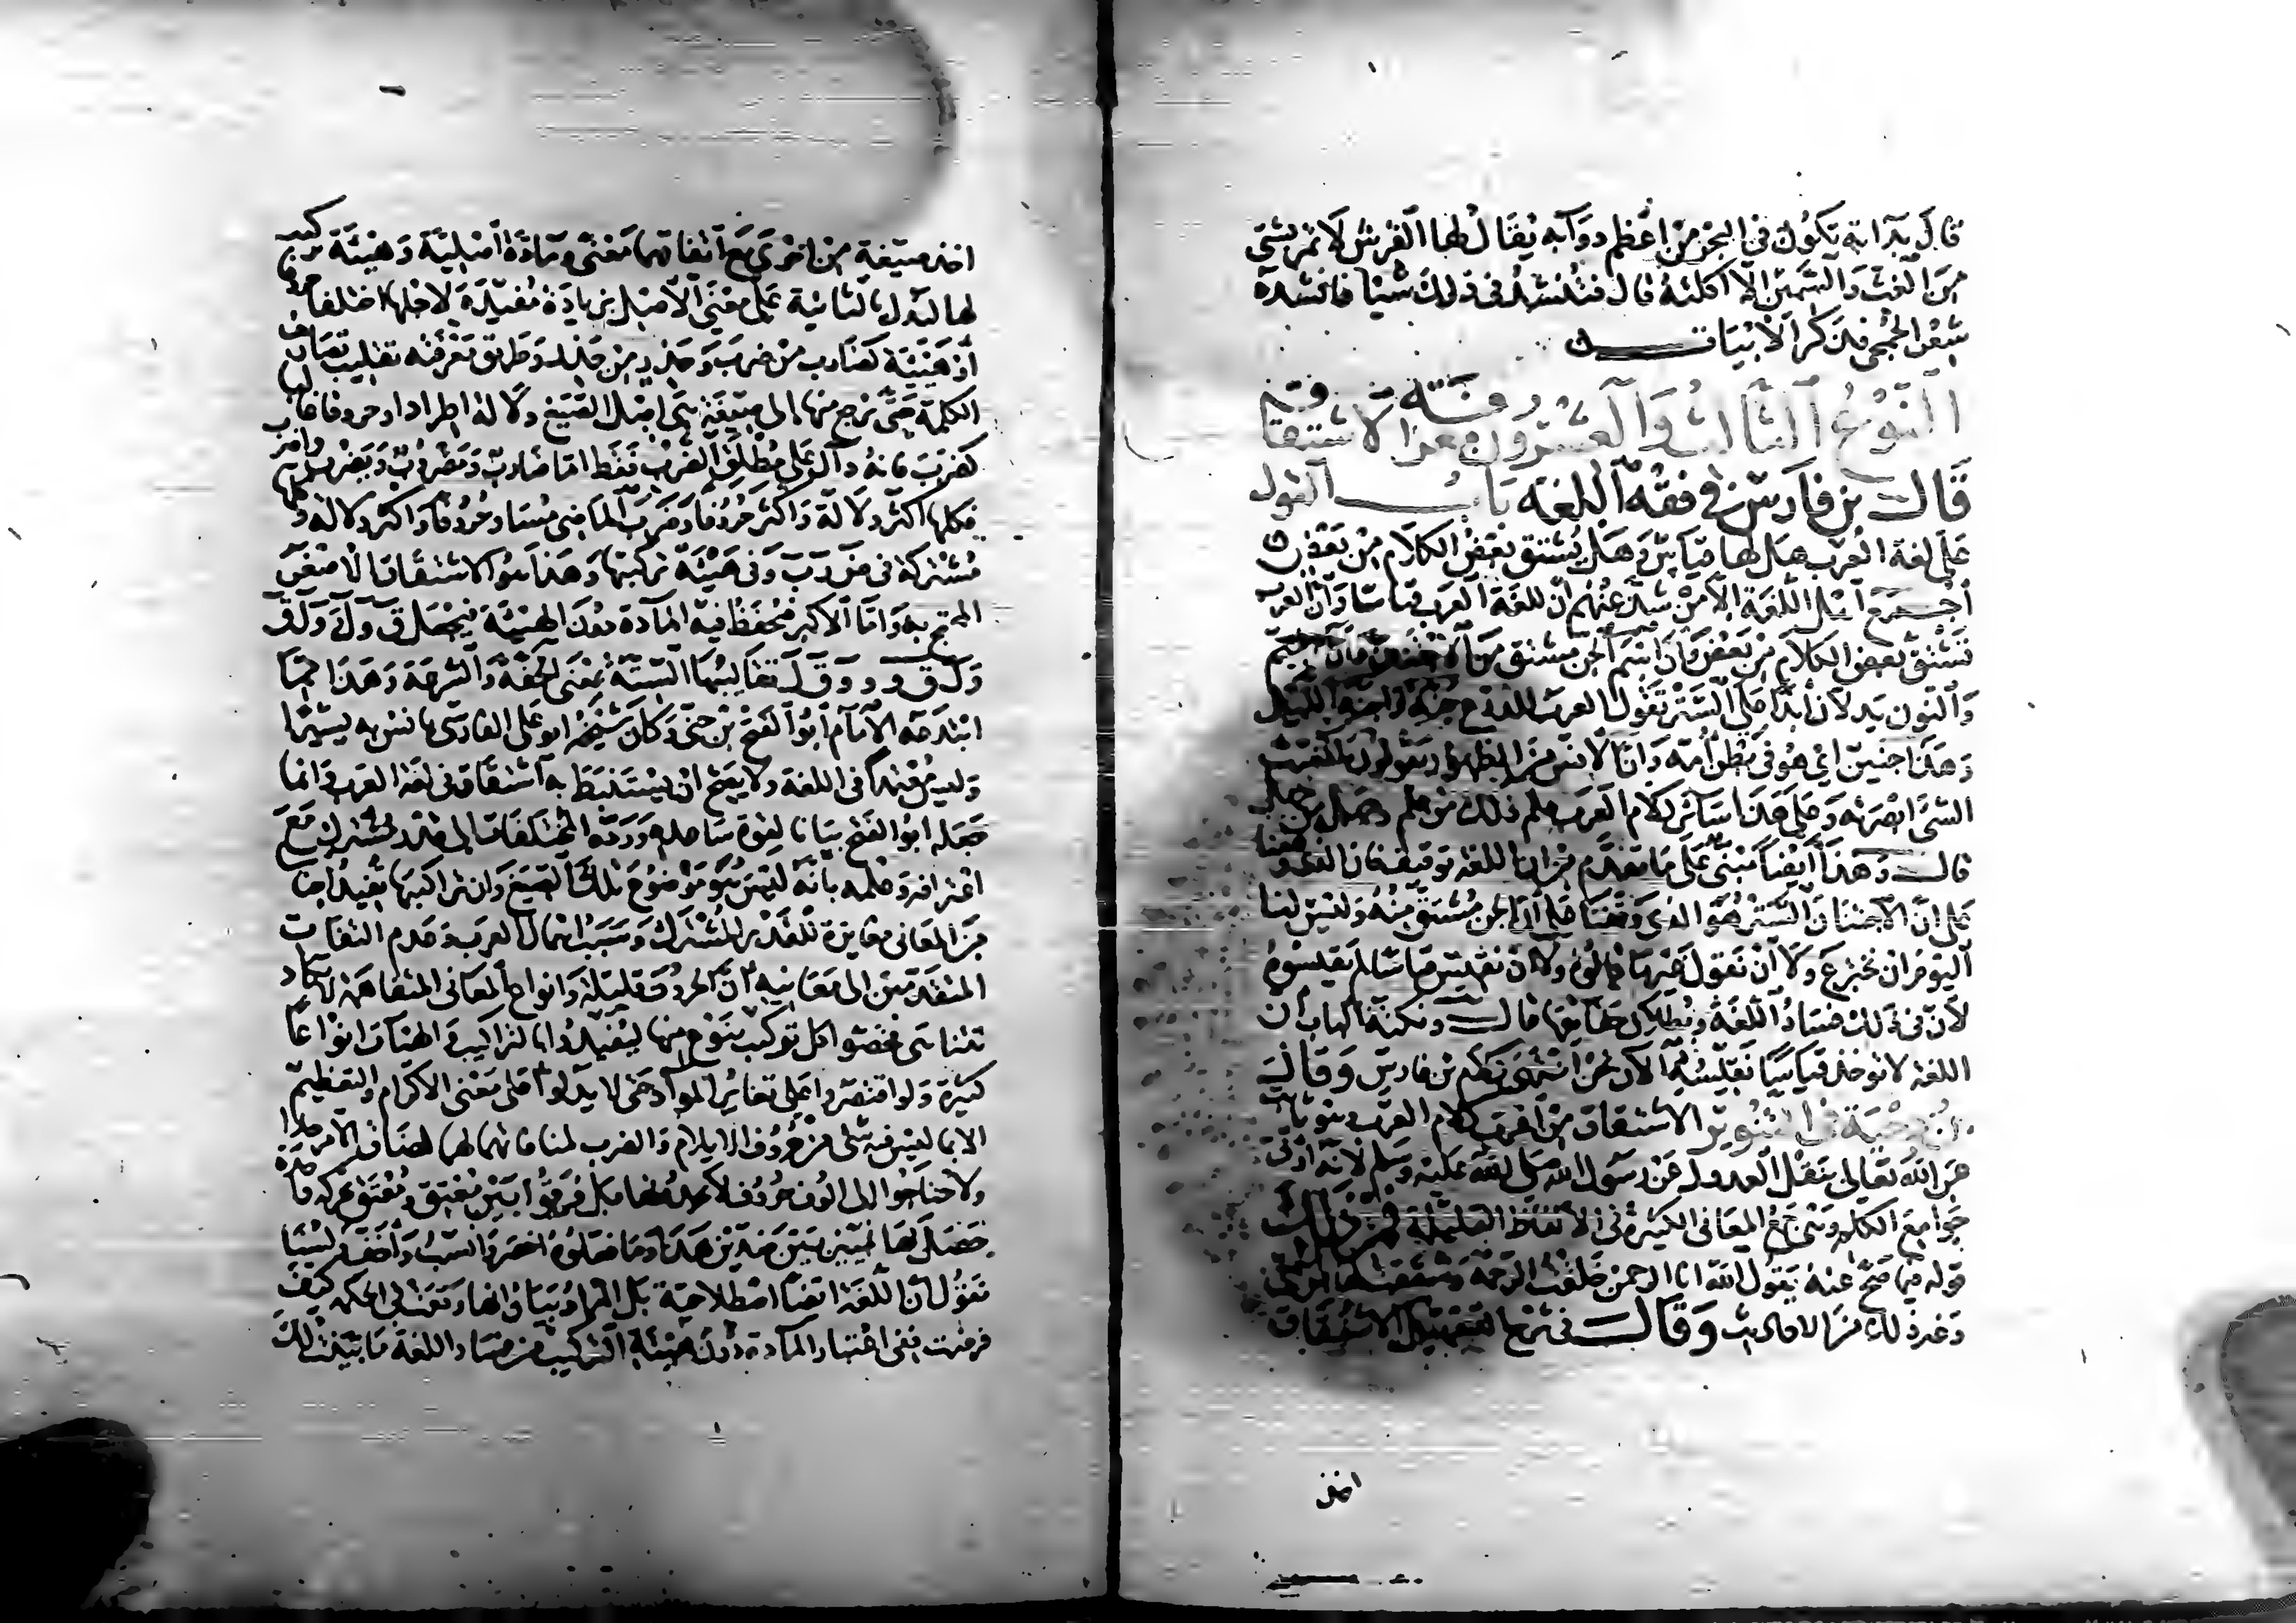 قال بدابة تكون في البحر من أعظم دوابه يقال لها القرش لا تمر بشيء
من الغث والسمين إلا أكلته قال فتنشد في ذلك شيئا فانشده
شعر الجمحي فذكر الأبيات
النوع الثالث والعشرون معرفة الاشتقاق
قال بن فارس في فقه اللغة باب القول
على لغة العرب هل لها قياس وهل يشتق بعض الكلام من بعض
أجمع أهل اللغة إلا من شذ عنهم أن للغة العرب قياسا وأن العرب
تشتق بعض الكلام من بعض وان اسم الجن مشتق من الاجتنان وأن الجيم
والنون يدلان أبدا على الستر تقول العرب للدرع جنة وأجنه الليل
وهذا جنين اي هو في بطن أمه وان الانس من الظهور يقولون آنست
الشيء ابصرته وعلى هذا سائر كلام العرب علم ذلك من علم وجهله من جهل
قال وهذا أيضا مبني على ما تقدم من ان اللغة توقيف فان الذي وقفنا
على ان الاجتنان الستر هو الذي وقفنا على أن الجن مشتق منه وليس لنا
اليوم ان نخترع ولا أن نقول غير ما قالوه ولا أن نقيس قياسا لم يقيسوه
لأن في ذلك فساد اللغة وبطلان حقائقها قال ونكتة الباب أن
اللغة لا تؤخذ قياسا نقيسه الآن نحن انتهى كلام بن فارس وقال
ابن دحية في التنوير الاشتقاق من أغرب كلام العرب وهو ثابت
عن الله تعالى بنقل العدول عن رسول الله صلى الله عليه وسلم لأنه أوتي
جوامع الكلم وهي جمع المعاني الكثيرة في الالفاظ القليلة فمن ذلك
قوله فيما صح عنه يقول الله انا الرحمن خلقت الرحم وشققت لها من اسمي
وغير ذلك من الاحاديث وقال في شرح التسهيل الاشتقاق
اخذ
اخذ صيغة من اخرى مع اتفاقهما معنى ومادة أصلية وهيئة تركيب
لها ليدل بالثانية على معنى الأصل بزيادة مفيدة لاجلها اختلفا حروفا
أو هيئة كضارب من ضرب وحذر من حذر وطريق معرفته تقليب تصاريف
الكلمة حتى يرجع منها الى صيغة هي اصل الصيغ دلالة اطراد او حروفا غالبا
كضرب فانه دال على مطلق الضرب فقط اما ضارب ومضروب ويضرب واضرب
فكلها اكثر دلالة واكثر حروفا وضرب الماضي مساو حروفا واكثر دلالة وكلها
مشتركة في ض ر ب وفي هيئة تركيبها وهذا هو الاشتقاق الاصغر
المحتج به واما الاكبر فيحفظ فيه المادة دون الهيئة فيجعل ق و ل و ل ق
و ل ق و تقاليبها الستة بمعنى الخفة والسرعة وهذا مما
ابتدعه الإمام أبو الفتح بن جني وكان شيخه ابو علي الفارسي يانس به يسيرا
وليس معتمدا في اللغة ولا يصح ان يستنبط به اشتقاق في لغة العرب وانما
جعله ابو الفتح بيانا لقوة ساعده ورده المختلفات الى قدر مشترك مع
اعترافه وعلمه بانه ليس هو موضوع تلك الصيغ وان تراكيبها تفيد اجناسا
من المعاني مغايرة للقدر المشترك وسبب اهمال العرب وعدم التفات
المتقدمين الى معانيه أن الحروف قليلة وانواع المعاني المتفاهمة لا تكاد
تتناهى فخصوا كل تركيب بنوع منها ليفيدوا بالتراكيب والهيآت انواعا
كثيرة ولو اقتصروا على تغاير المواد حتى لا يدلوا على معنى الاكرام والتعظيم
الا بما ليس فيه شيء من حروف الايلام والضرب لمنافاتهما لها لضاق الأمر جدا
ولاحتاجوا الى الوف حروف لا يجدونها بل فرقوا بين معتق ومعتق بحركة واحدة
حصل بها تمييز بين ضدين هذا وما فعلوه اخصر وانسب وأخف ولسنا
نقول ان اللغة ايضا اصطلاحية بل المراد بيان انها وقعت بالحكمة كيف
فرضت ففي اعتبار المادة دون هيئة التركيب من فساد اللغة ما بينت لك